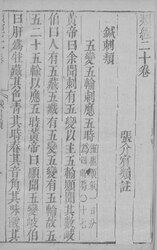 類經二十卷
張介賓類註
鍼刺類
五變五輸刺應五時
黃帝曰余聞刺有五變以主五輸願聞其數岐
伯曰人有五藏五藏有五變五變有五輸故五
五二十五輸以應五時黃帝曰願聞五變岐伯
曰肝爲牡藏其色青其時春其音角其味酸其